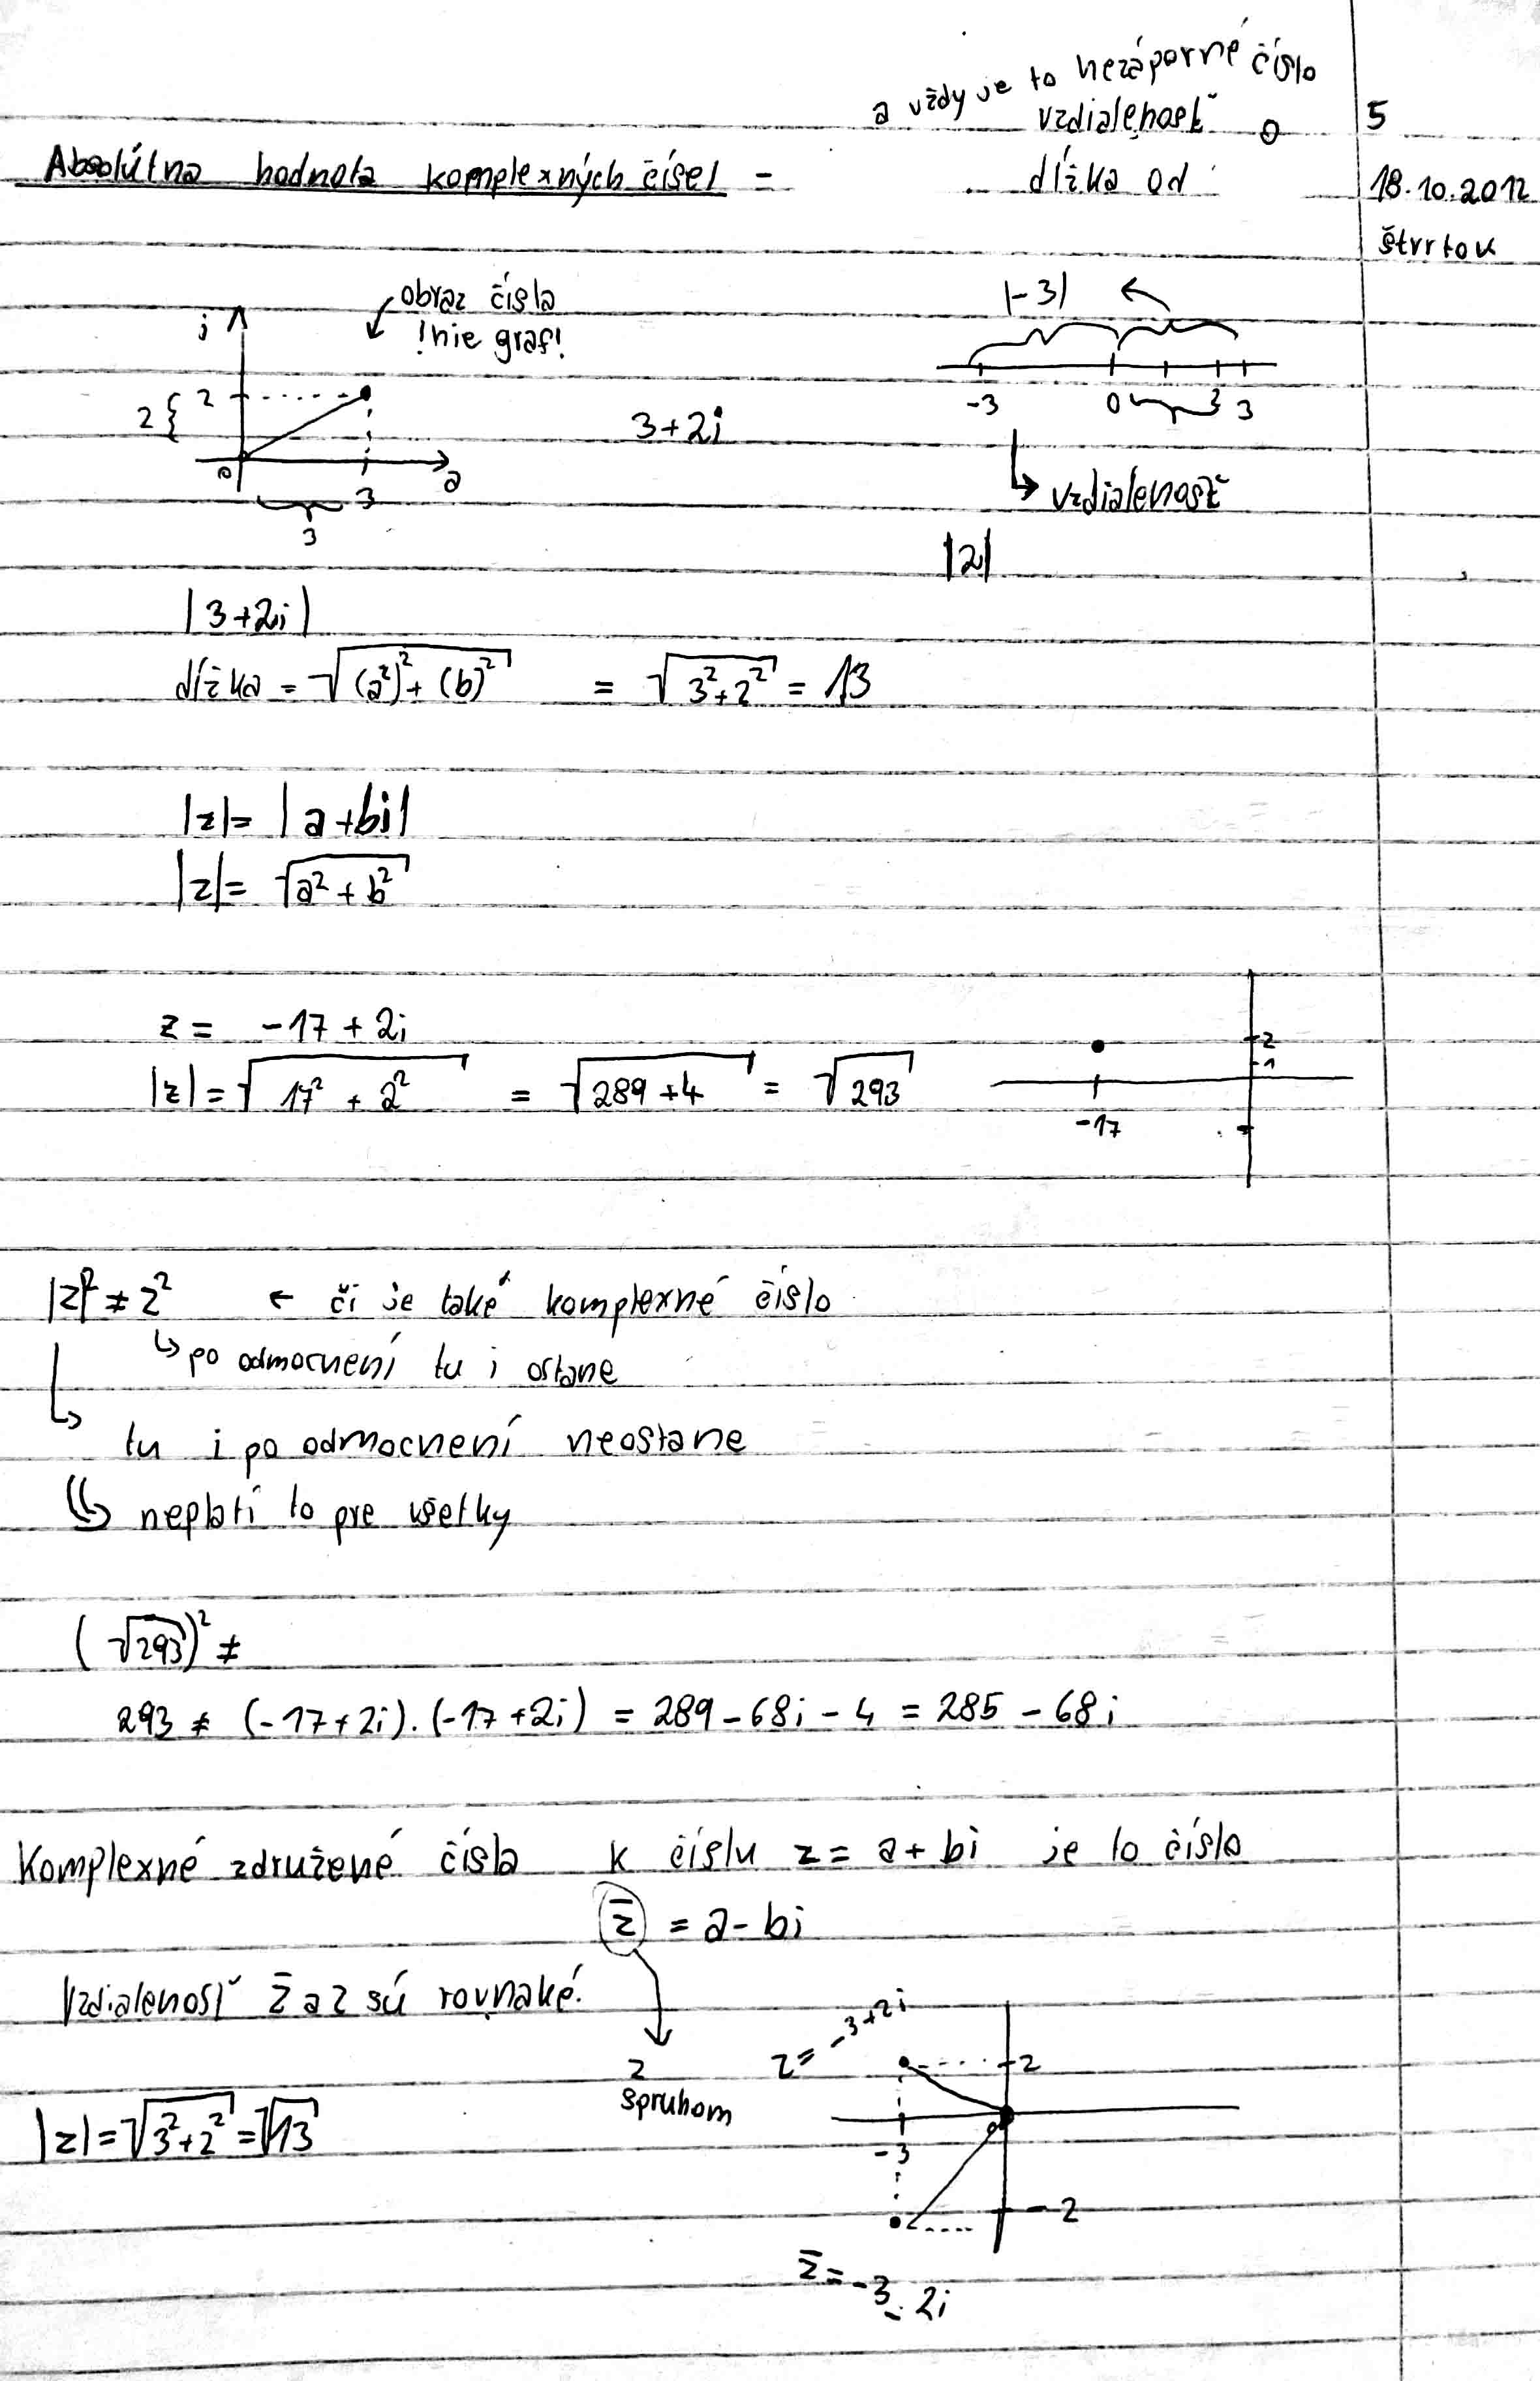 a vždy je to nezáporné číslo
vzdialenosť 0
5
Absolútna hodnota komplexných čísel = dĺžka od
18.10.2012
štvrtok
obraz čísla
!nie graf!
i
2 { 2
0 3 a
3
3+2i
|-3|
-3 0 2 3
vzdialenosť
|2|
|3+2i|
dĺžka = √(a²)² + (b)² = √3²+2² = 13
|z| = |a+bi|
|z| = √a² + b²
z = -17 + 2i
|z| = √17² + 2² = √289+4 = √293
2
1
-17
|z|² ≠ z² ← či je také komplexné číslo
↳ po odmocnení tu i ostane
↳ tu i po odmocnení neostane
↳ neplatí to pre všetky
(√293)² ≠
293 ≠ (-17+2i).(-17+2i) = 289-68i-4 = 285-68i
Komplexné združené čísla k číslu z = a+bi je to číslo
z̄ = a-bi
Vzdialenosť z̄ a z sú rovnaké.
z
s pruhom
z = -3+2i
2
|z| = √3²+2² = √13
-3 0
-2
z̄ = -3-2i